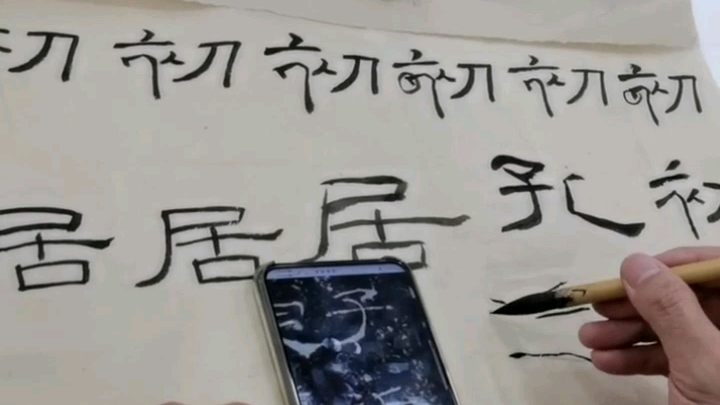 初 初 初 初 初 初
居 居 居 孔 初